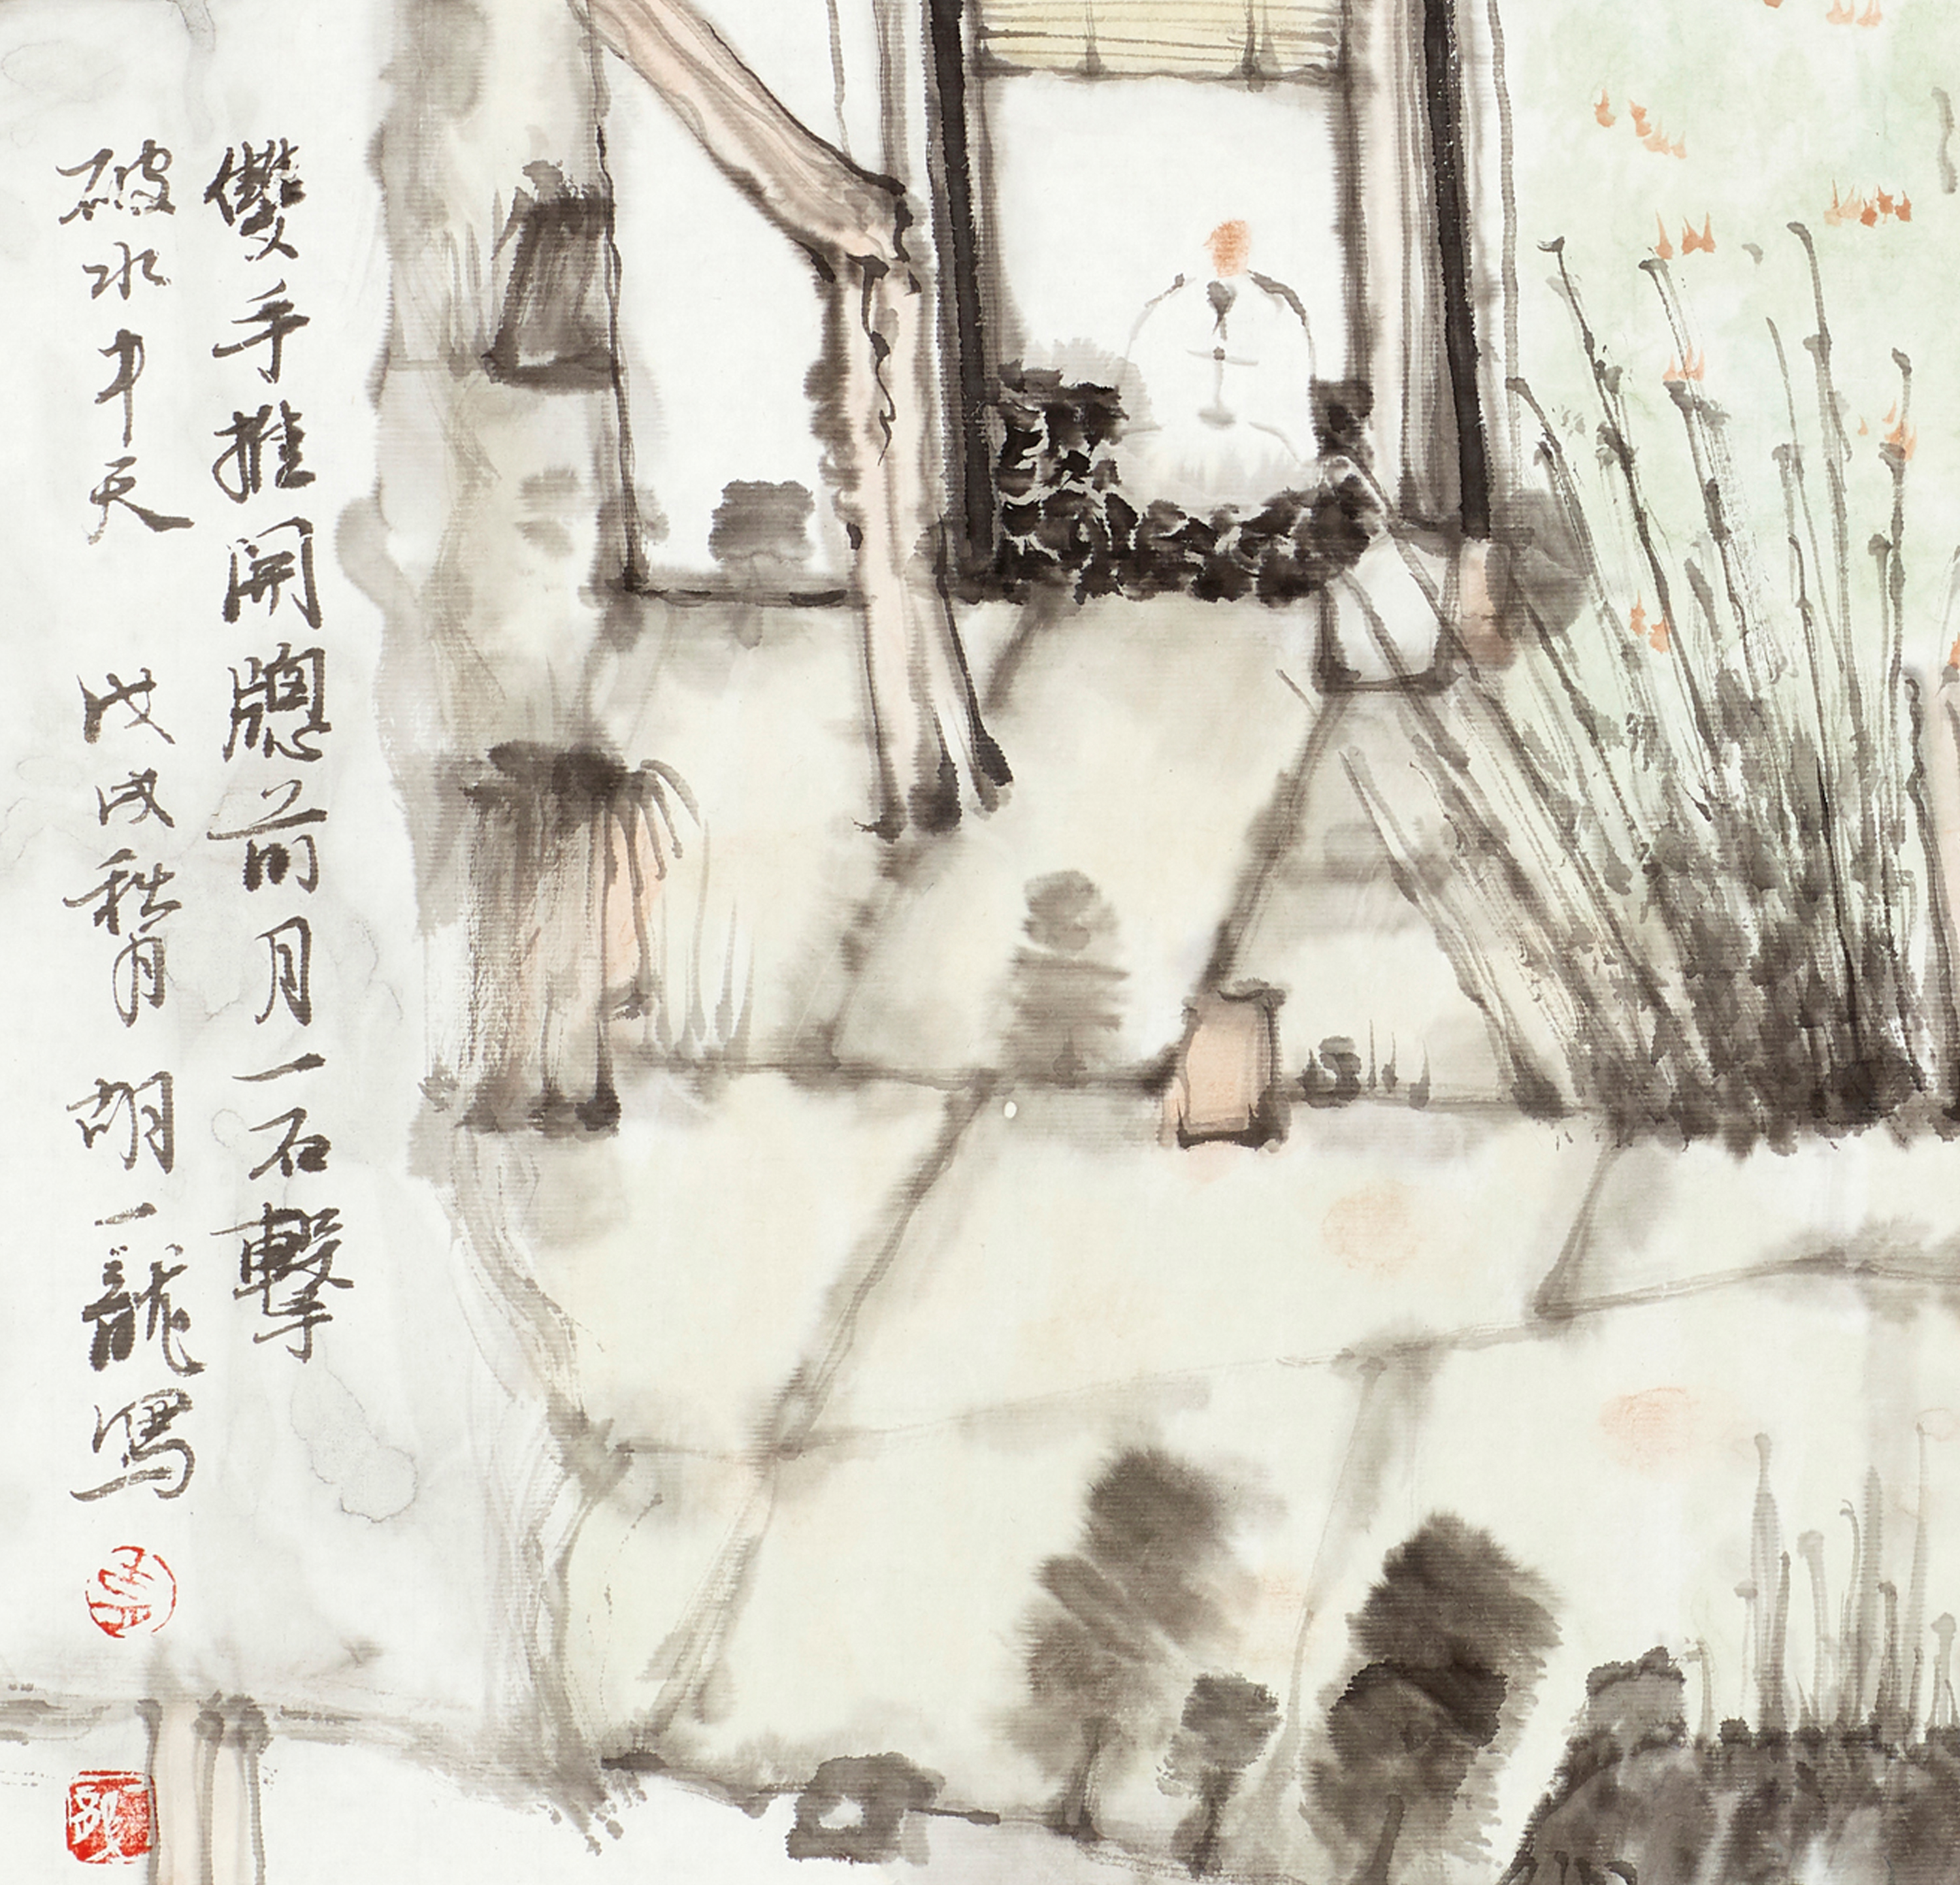 雙手推開牕前月一石擊
破水中天 戊戌秋月 胡一龍寫